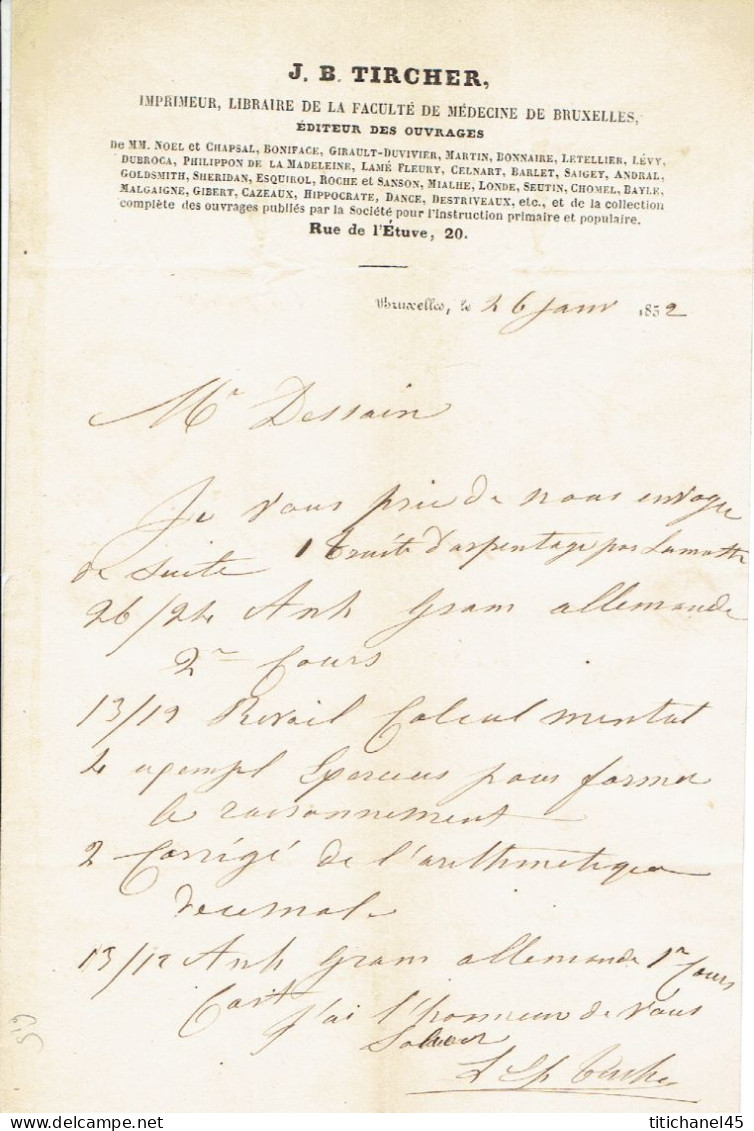 J. B. TIRCHER,
IMPRIMEUR, LIBRAIRE DE LA FACULTÉ DE MÉDECINE DE BRUXELLES,
ÉDITEUR DES OUVRAGES
De MM. NOEL et CHAPSAL, BONIFACE, GIRAULT-DUVIVIER, MARTIN, BONNAIRE, LETELLIER, LÉVY,
DUBROCA, PHILIPPON DE LA MADELEINE, LAMÉ FLEURY, CELNART, BARLET, SAIGEY, ANDRAL,
GOLDSMITH, SHERIDAN, ESQUIROL, ROCHE et SANSON, MIALHE, LONDE, SEUTIN, CHOMEL, BAYLE,
MALGAIGNE, GIBERT, CAZEAUX, HIPPOCRATE, DANCE, DESTRIVEAUX, etc., et de la collection
complète des ouvrages publiés par la Société pour l'instruction primaire et populaire.
Rue de l'Étuve, 20.
Bruxelles, le 26 Janv 1852
Mr Dessain
Je vous prie de nous envoyer
de suite 1 traité d'arpentage par Lamotte
26/24 Anh Gram allemande
2me Cours
13/12 Calcul mental
4 exempl Exercices pour former
le raisonnement
2 Corrigé de l'arithmetique
decimale
13/12 Anh Gram allemande 1r Cours
Cart
J'ai l'honneur de vous
Saluer
titichanel45